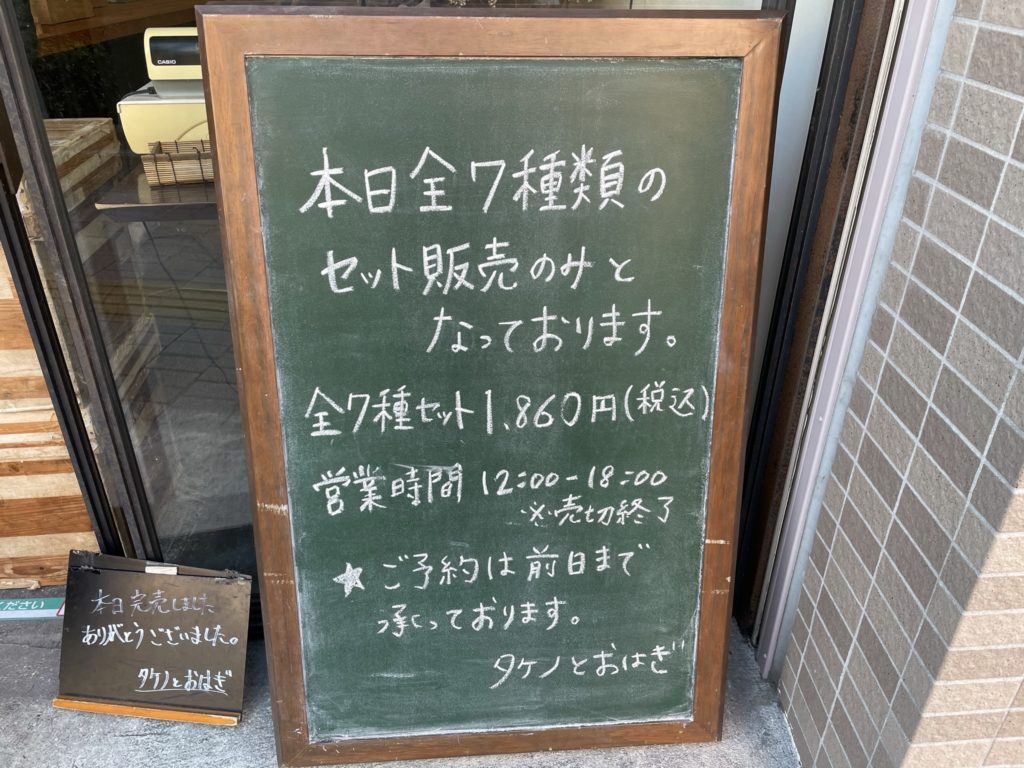 CASIO
本日全7種類の
セット販売のみと
なっております。
全7種セット1,860円(税込)
営業時間 12:00-18:00
※売切終了
★ご予約は前日まで
承っております。
タケノとおはぎ
ください
本日完売しました
ありがとうございました。
タケノとおはぎ